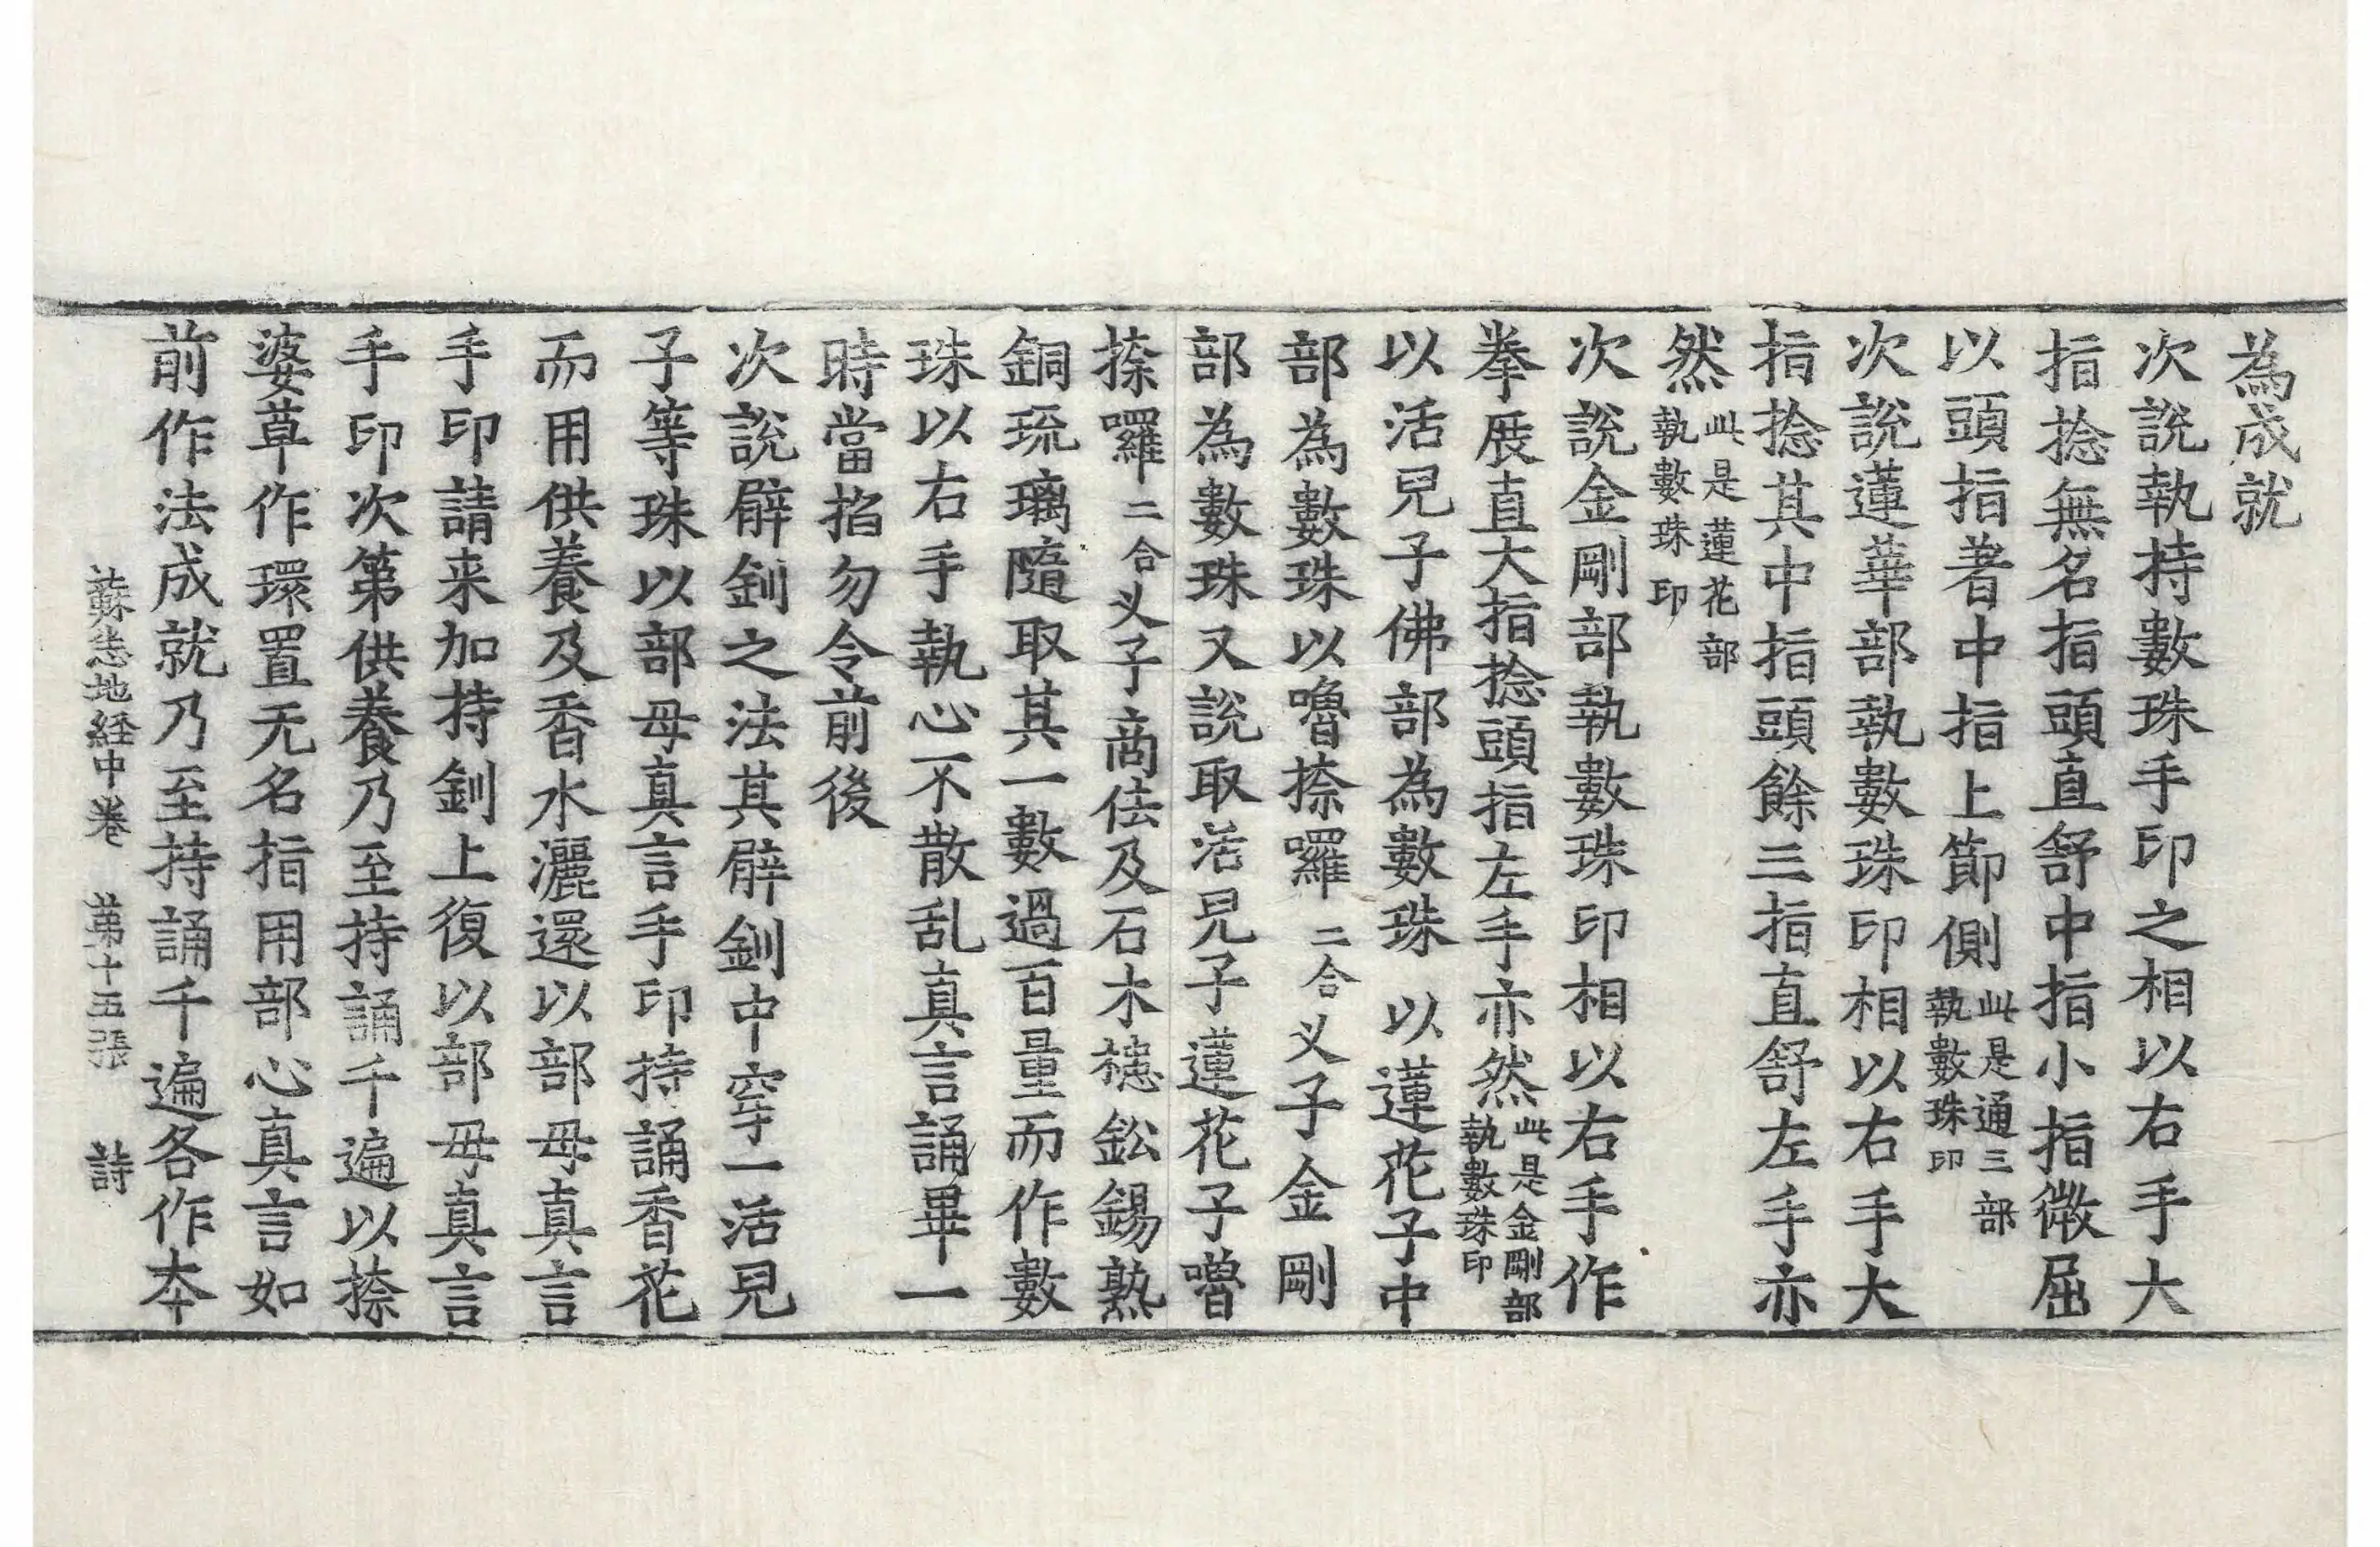 為成就
次說執持數珠手印之相以右手大
指捻無名指頭直舒中指小指微屈
以頭指著中指上節側此是通三部執數珠印
次說蓮華部執數珠印相以右手大
指捻其中指頭餘三指直舒左手亦
然此是蓮花部執數珠印
次說金剛部執數珠印相以右手作
拳展直大指捻頭指左手亦然此是金剛部執數珠印
以活兒子佛部為數珠 以蓮花子中
部為數珠以嚕捺囉二合乂子金剛
部為數珠又說取活兒子蓮花子嚕
捺囉二合乂子商佉及石木槵鈆錫熟
銅琉璃隨取其一數過百量而作數
珠以右手執心不散乱真言誦畢一
時當掐勿令前後
次說臂釧之法其臂釧中穿一活兒
子等珠以部母真言手印持誦香花
而用供養及香水灑還以部母真言
手印請来加持釧上復以部母真言
手印次第供養乃至持誦千遍以捺
婆草作環置无名指用部心真言如
前作法成就乃至持誦千遍各作本
蘇悉地経中卷 第十五張 詩